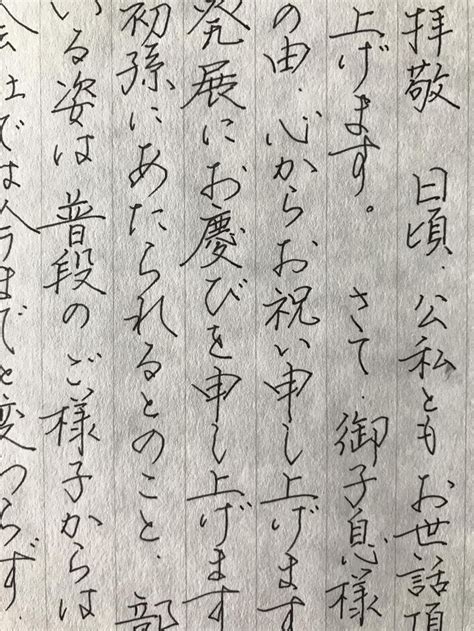 拝敬 日頃、公私ともお世話頂
上げます。 さて、御子息様
の由、心からお祝い申し上げます
発展にお慶びを申し上げます
初孫にあたられるとのこと、部
いる姿は普段のご様子からは
社では今までと変わらず